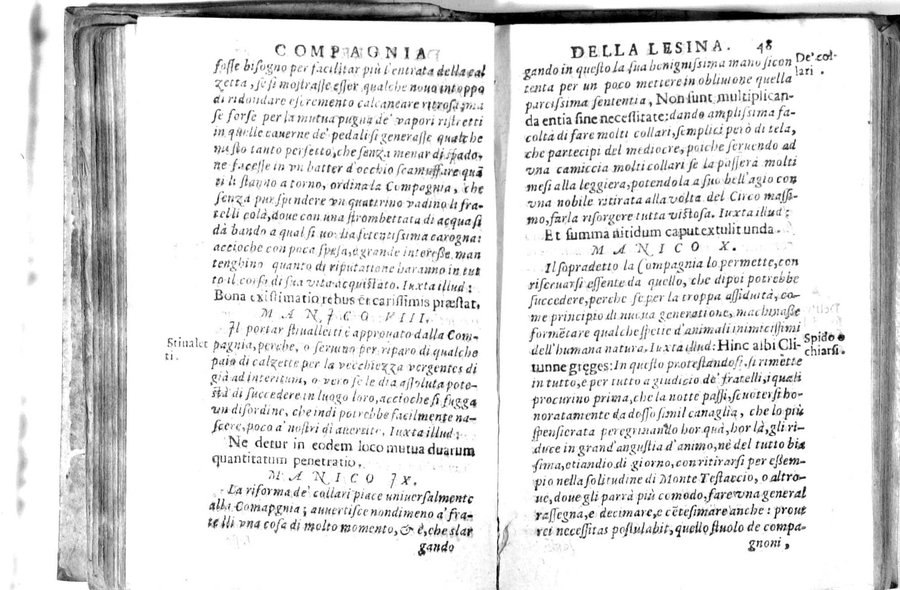 COMPAGNIA
fosse bisogno per facilitar più l'entrata della cal
zetta, se si mostrasse esser qualche nouo intoppo
di ridondare escremento calcaneare ritrosa, ma
se forse per la mutua pugna de' vapori ristretti
in quelle cauerne de' pedali si generasse qualche
misto tanto perfetto, che senza menar di spado,
ne facesse in vn batter d'occhio scamuffare quā
ti li stanno a torno, ordina la Compagnia, che
senza pur spendere vn quattrino vadino li fra-
telli colà, doue con una strombettata di acqua si
dà bando a qual si uoglia fetentissima carogna:
acciochè con poca spesa, e grande interesse, man
tenghino quanto di riputatione haranno in tut
to il corso di sua vita acquistato. Iuxta illud:
Bona existimatio rebus et carissimis præstat.
MANICO VIII.
Stiualet
ti.
Il portar stiualletti è approuato dalla Com-
pagnia, perche, o seruino per riparo di qualche
paio di calzette per la vecchiezza vergentes di
già ad interitum, o vero se le dia assoluta pote-
stà di succedere in luogo loro, acciochè si fugga
un disordine, che indi potrebbe facilmente na-
scere, poco a' nostri di auertito. Iuxta illud:
Ne detur in eodem loco mutua duarum
quantitatum penetratio.
MANICO IX.
La riforma de' collari piace uniuersalmente
alla Comapgnia; auuertisce nondimeno a' fra-
telli vna cosa di molto momento, & è, che slar
gando
DELLA LESINA. 48
De' col-
lari.
gando in questo la sua benignissima mano si con
tenta per un poco mettere in obliuione quella
parcissima sententia, Non sunt multiplican-
da entia sine necessitate: dando amplissima fa-
coltà di fare molti collari, semplici però di tela,
che partecipi del mediocre, poiche seruendo ad
vna camiccia molti collari se la passerà molti
mesi alla leggiera, potendola a suo bell'agio con
vna nobile ritirata alla volta del Circo massi-
mo, farla risorgere tutta vistosa. Iuxta illud:
Et summa nitidum caput extulit unda.
MANICO X.
Il sopradetto la Compagnia lo permette, con
riseruarsi essente da quello, che dipoi potrebbe
succedere, perche se per la troppa assiduità, co-
me principio di nuoua generatione, machinasse
formētare qualche spetie d'animali inimicissimi
dell'humana natura. Iuxta illud: Hinc albi Cli-
Spidoc
chiarsi.
tunne greges: In questo protestandosi, si rimette
in tutto, e per tutto a giudicio de' fratelli, i quali
procurino prima, che la notte passi, scuotersi ho-
noratamente da dosso simil canaglia, che lo più
spensierata peregrinando hor quà, hor là, gli ri-
duce in grand'angustia d'animo, nè del tutto bia
sima, etiandio di giorno, con ritirarsi per essem-
pio nella solitudine di Monte Testaccio, o altro-
ue, doue gli parrà più comodo, fare vna general
rassegna, e decimare, e cētesimare anche: prout
rei necessitas postulabit, quello stuolo de compa-
gnoni,